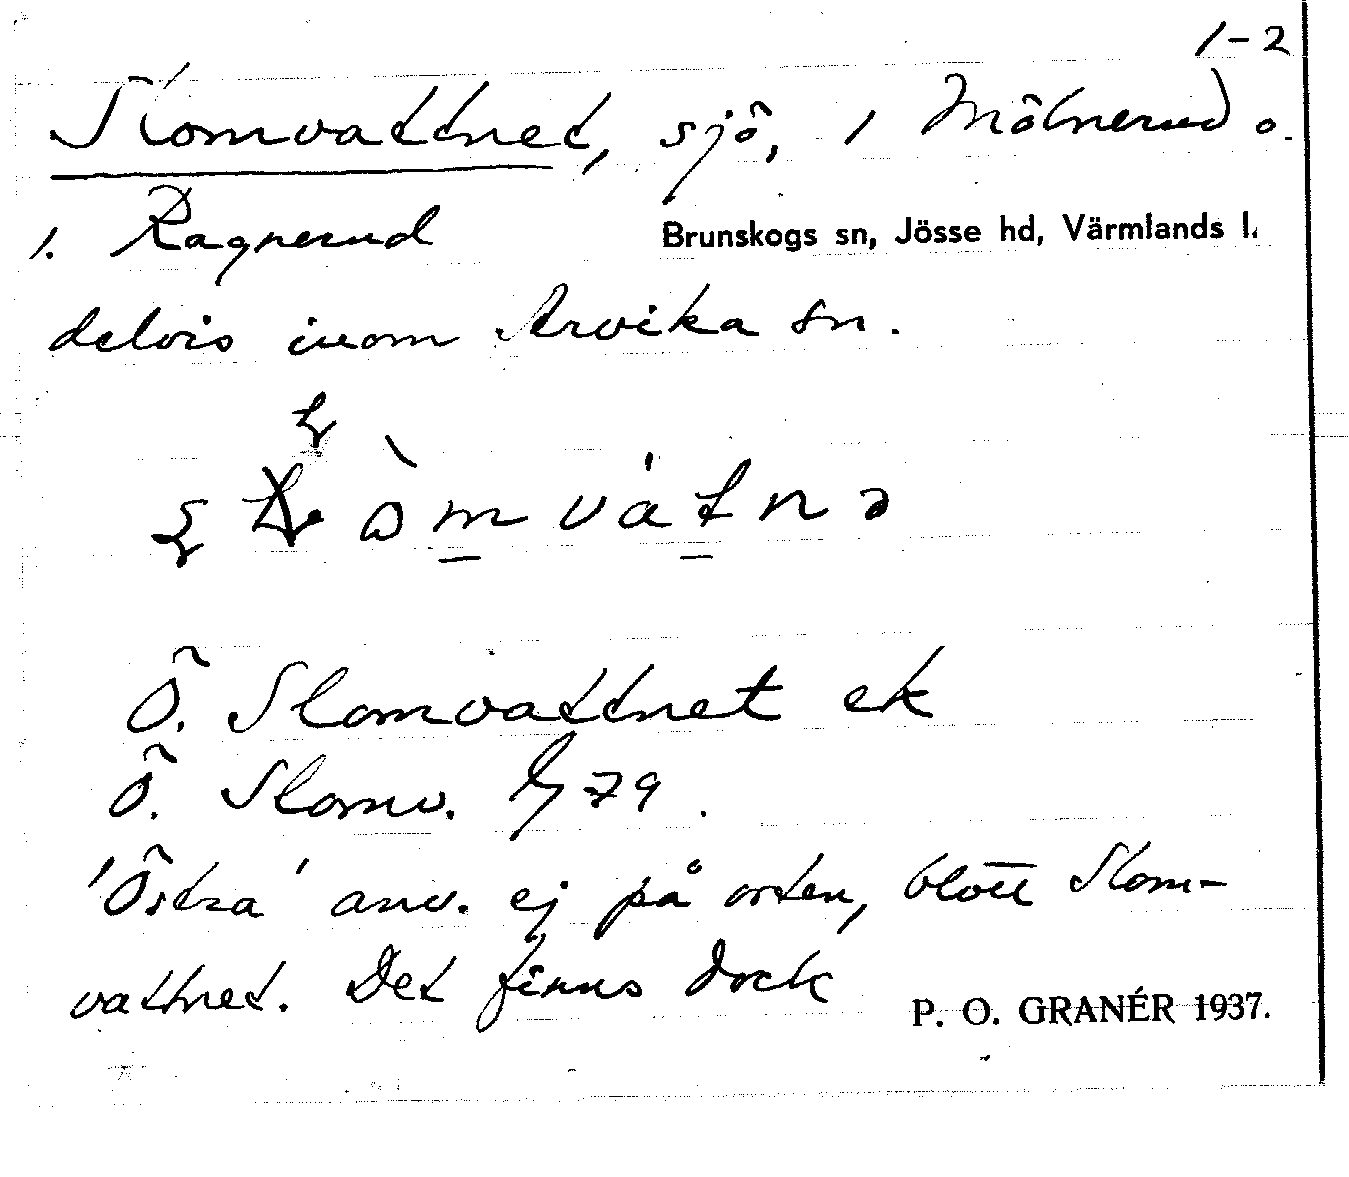 1-2
Slomvattnet, sjö, 1 Mölnerud o.
1. Ragnerud Brunskogs sn, Jösse hd, Värmlands l.
delvis inom Arvika sn.
Ö. Slomvattnet ek
Ö. Slomv. 79.
'Östra' anv. ej på orten, blott Slom-
vattnet. Det finns dock P. O. GRANÉR 1937.